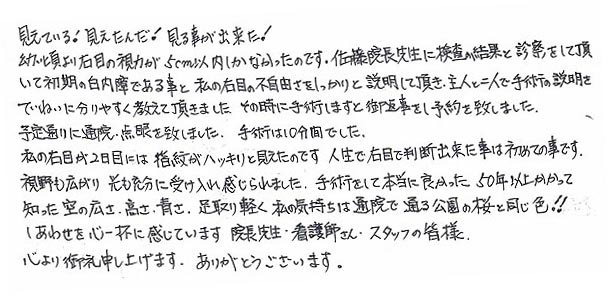 見えている！見えたんだ！見る事が出来た！
幼い頃より右目の視力が5cm以内しかなかったのです。佐藤院長先生に検査の結果と診察をして頂
いて初期の白内障である事と私の右目の不自由さをしっかりと説明して頂き、主人と二人で手術の説明を
ていねいに分りやすく教えて頂きました その時に手術しますと御返事をし予約を致しました。
予定通りに通院・点眼を致しました。手術は10分間でした。
私の右目が2日目には指紋がハッキリと見えたのです 人生で右目で判断出来た事は初めての事です。
視野も広がり光も充分に受け入れ感じられました。手術をして本当に良かった 50年以上かかって
知った空の広さ、高さ、青さ、足取り軽く私の気持ちは通院で通る公園の桜と同じ色！！
しあわせを心一杯に感じています 院長先生・看護師さん・スタッフの皆様、
心より御礼申し上げます。ありがとうございます。